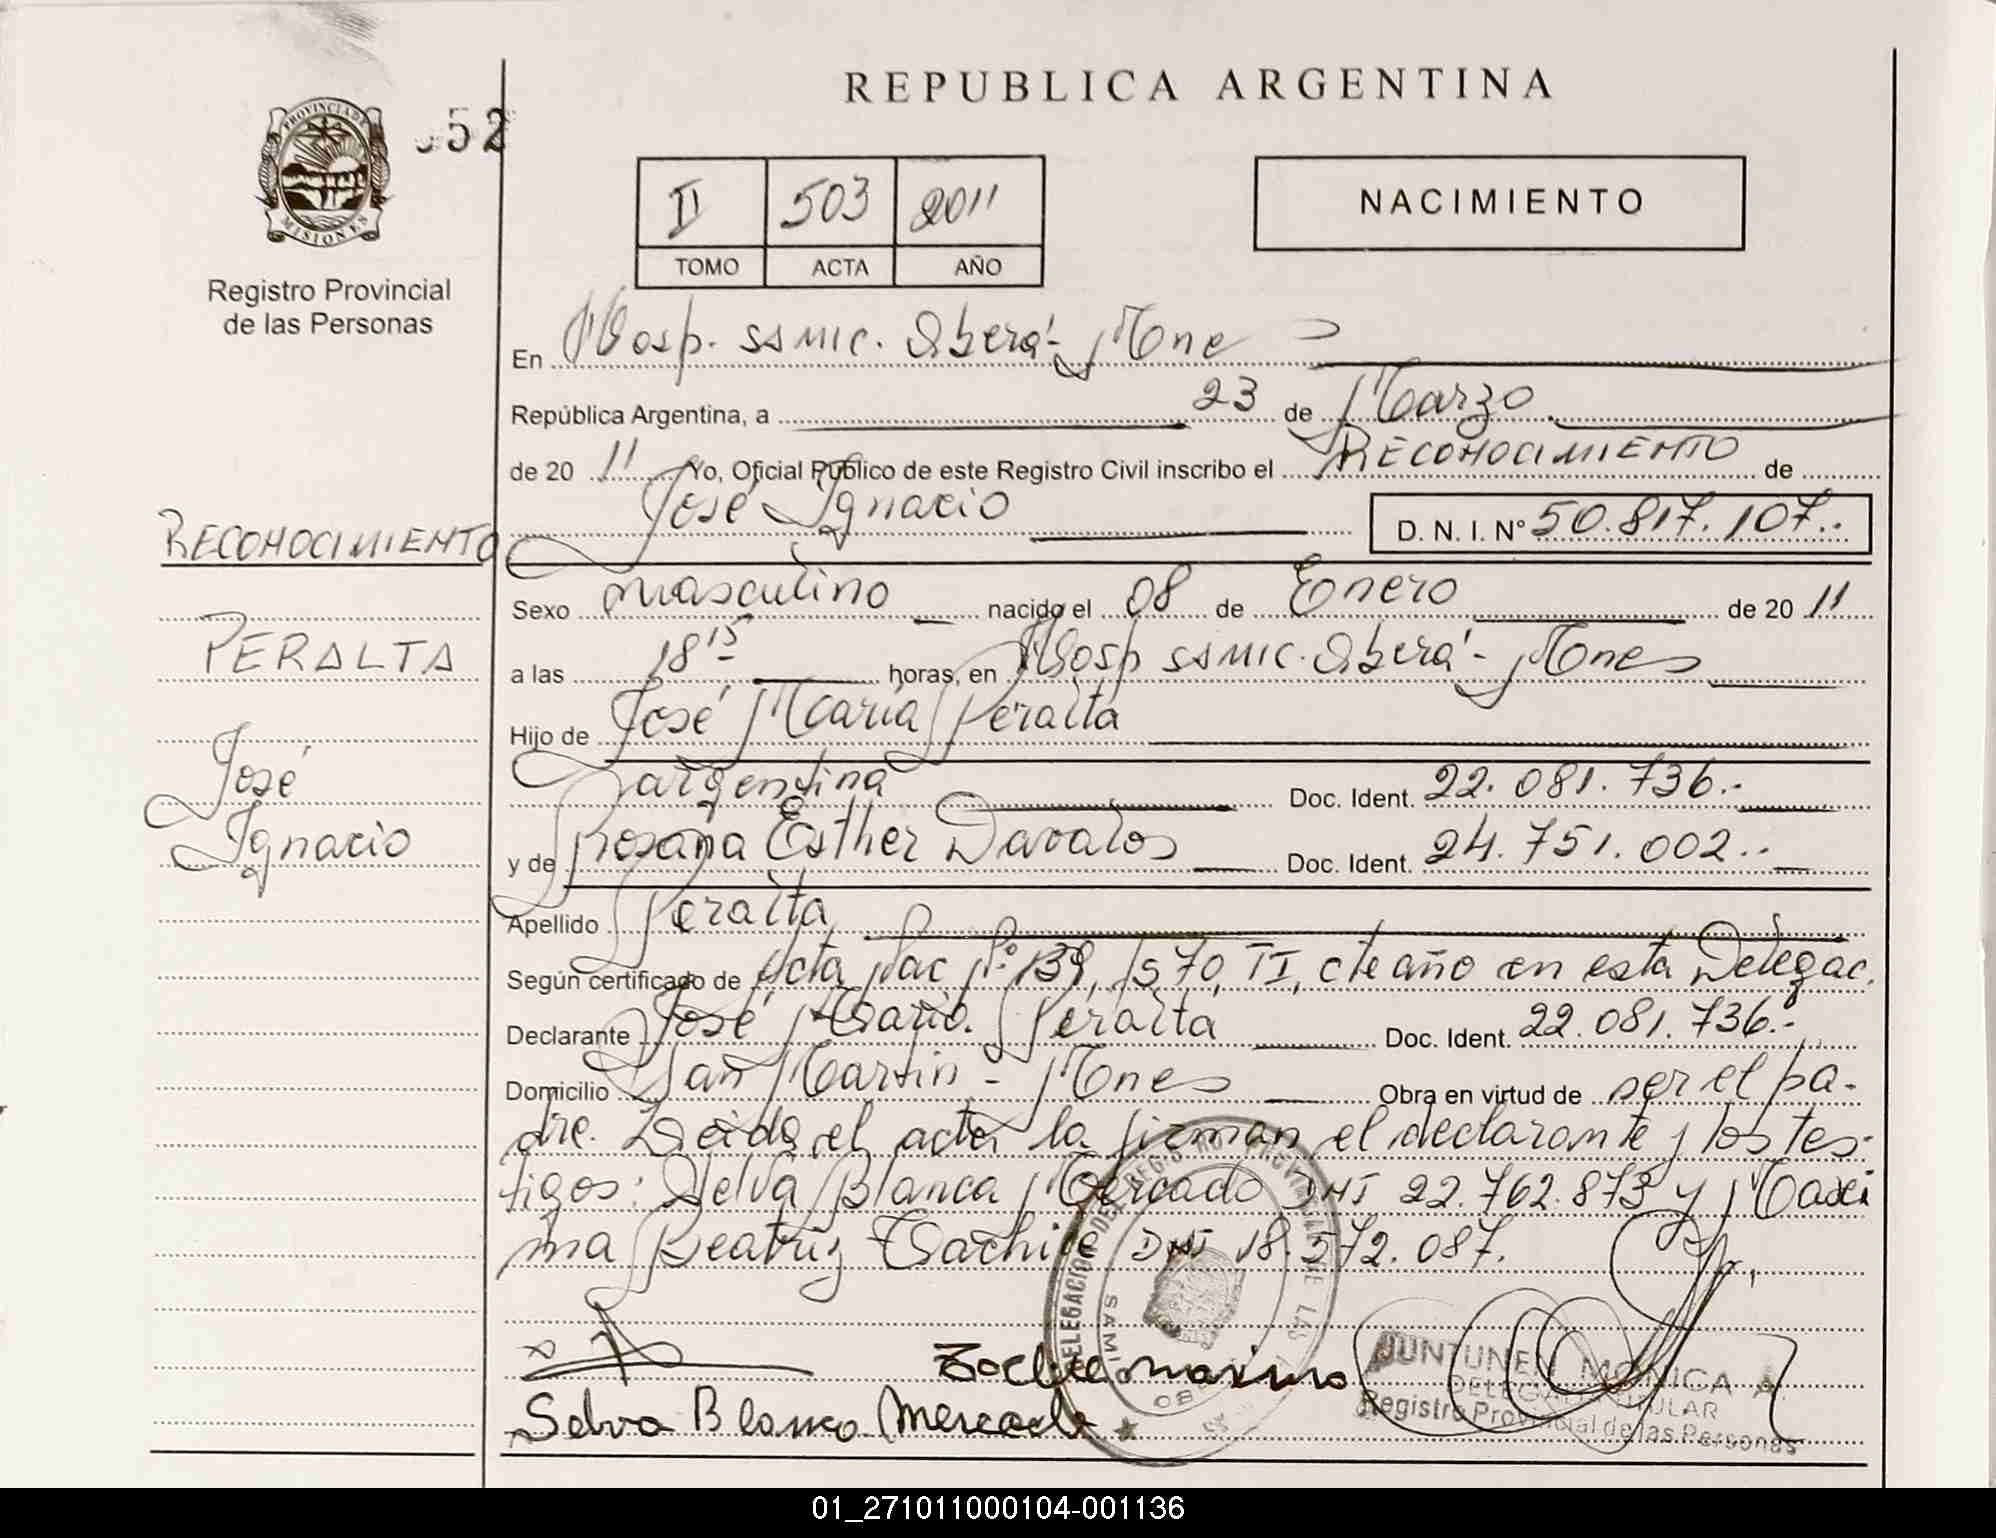 REPUBLICA ARGENTINA
PROVINCIA DE
MISIONES
52
Registro Provincial
de las Personas
II 503 2011
TOMO ACTA AÑO
NACIMIENTO
En Hosp. SAMIC. Oberá- Mnes
República Argentina, a 23 de Marzo
de 20 11 Yo, Oficial Público de este Registro Civil inscribo el RECONOCIMIENTO de
José Ignacio D. N. I. Nº 50.817.107.-
RECONOCIMIENTO
PERALTA
José
Ignacio
Sexo masculino nacido el 08 de Enero de 20 11
a las 18 15 horas, en Hosp SAMIC. Oberá- Mnes
Hijo de José María Peralta
argentina Doc. Ident. 22.081.736.-
y de Rosana Esther Davalos Doc. Ident. 24.751.002.-
Apellido Peralta
Según certificado de Acta Nac Nº 139, Fº 70, TII, cte año en esta Delegac.
Declarante José María Peralta Doc. Ident. 22.081.736.-
Domicilio San Martin - Mnes Obra en virtud de ser el pa-
dre. Leida el acta la firman el declarante y los tes-
tigos: Selva Blanca Mercado DNI 22.762.873 y Maxi
ma Beatriz DNI 18.572.087.
Selva Blanca Mercado
DELEGACION DEL REGISTRO PROVINCIAL DE LAS
JUNTUNEN MONICA A
DELEGADA TITULAR
Registro Provincial de las Personas
01_271011000104-001136